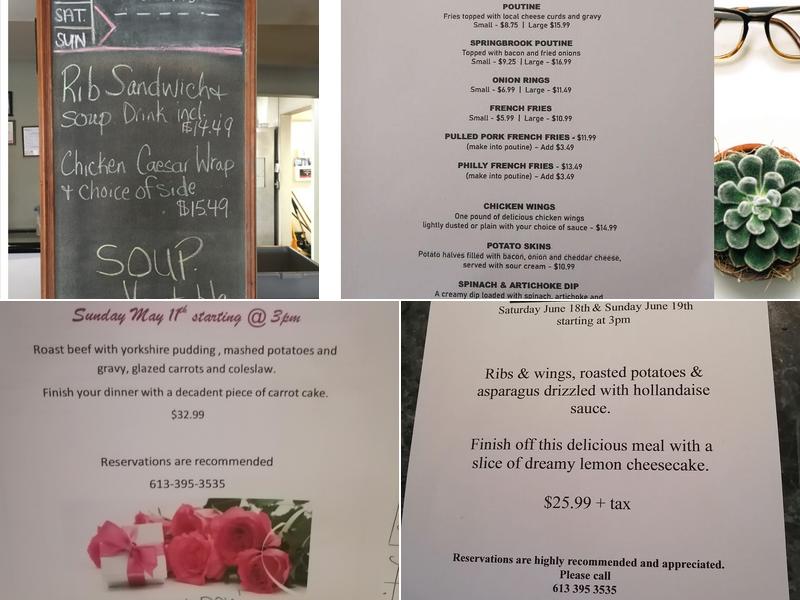 SAT.
SUN
Rib Sandwich +
soup Drink incl.
$14.49
Chicken Caesar Wrap
+ choice of side
$15.49
SOUP
POUTINE
Fries topped with local cheese curds and gravy
Small - $8.75 | Large $15.99
SPRINGBROOK POUTINE
Topped with bacon and fried onions
Small - $9.25 | Large - $16.99
ONION RINGS
Small - $6.99 | Large - $11.49
FRENCH FRIES
Small - $5.99 | Large - $10.99
PULLED PORK FRENCH FRIES - $11.99
(make into poutine) – Add $3.49
PHILLY FRENCH FRIES - $13.49
(make into poutine) – Add $3.49
CHICKEN WINGS
One pound of delicious chicken wings
lightly dusted or plain with your choice of sauce - $14.99
POTATO SKINS
Potato halves filled with bacon, onion and cheddar cheese,
served with sour cream - $10.99
SPINACH & ARTICHOKE DIP
A creamy dip loaded with spinach, artichoke and
Sunday May 11th starting @ 3pm
Roast beef with yorkshire pudding , mashed potatoes and
gravy, glazed carrots and coleslaw.
Finish your dinner with a decadent piece of carrot cake.
$32.99
Reservations are recommended
613-395-3535
Saturday June 18th & Sunday June 19th
starting at 3pm
Ribs & wings, roasted potatoes &
asparagus drizzled with hollandaise
sauce.
Finish off this delicious meal with a
slice of dreamy lemon cheesecake.
$25.99 + tax
Reservations are highly recommended and appreciated.
Please call
613 395 3535